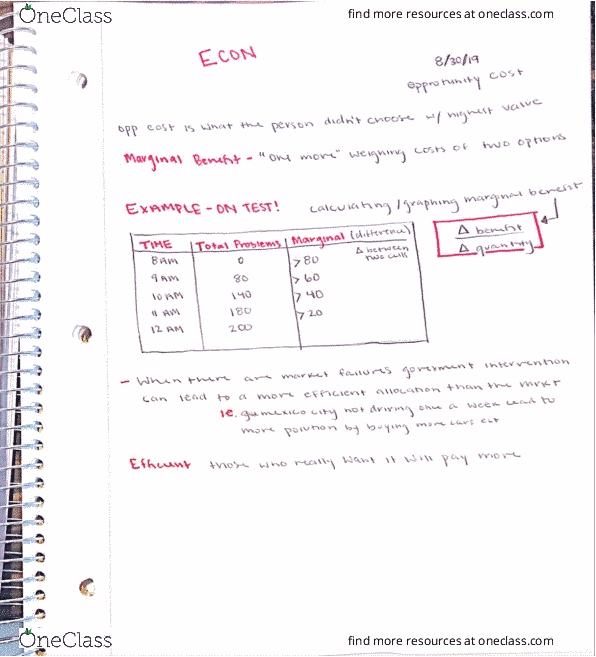 OneClass
find more resources at oneclass.com
ECON
8/30/19
opprotunity cost
opp cost is what the person didn't choose w/ highest value
Marginal Benefit - "one more" weighing costs of two options
EXAMPLE - ON TEST! calculating/graphing marginal benefit
Δ benefit
Δ quantity
TIME Total Problems Marginal (difference)
Δ between two cells
8 AM 0 >80
9 AM 80 >60
10 AM 140 >40
11 AM 180 >20
12 AM 200
- When there are market failures goverment intervention
can lead to a more efficient allocation than the mrkt
ie. mexico city not driving one a week lead to
more polution by buying more cars
Efficient those who really want it will pay more
OneClass
find more resources at oneclass.com